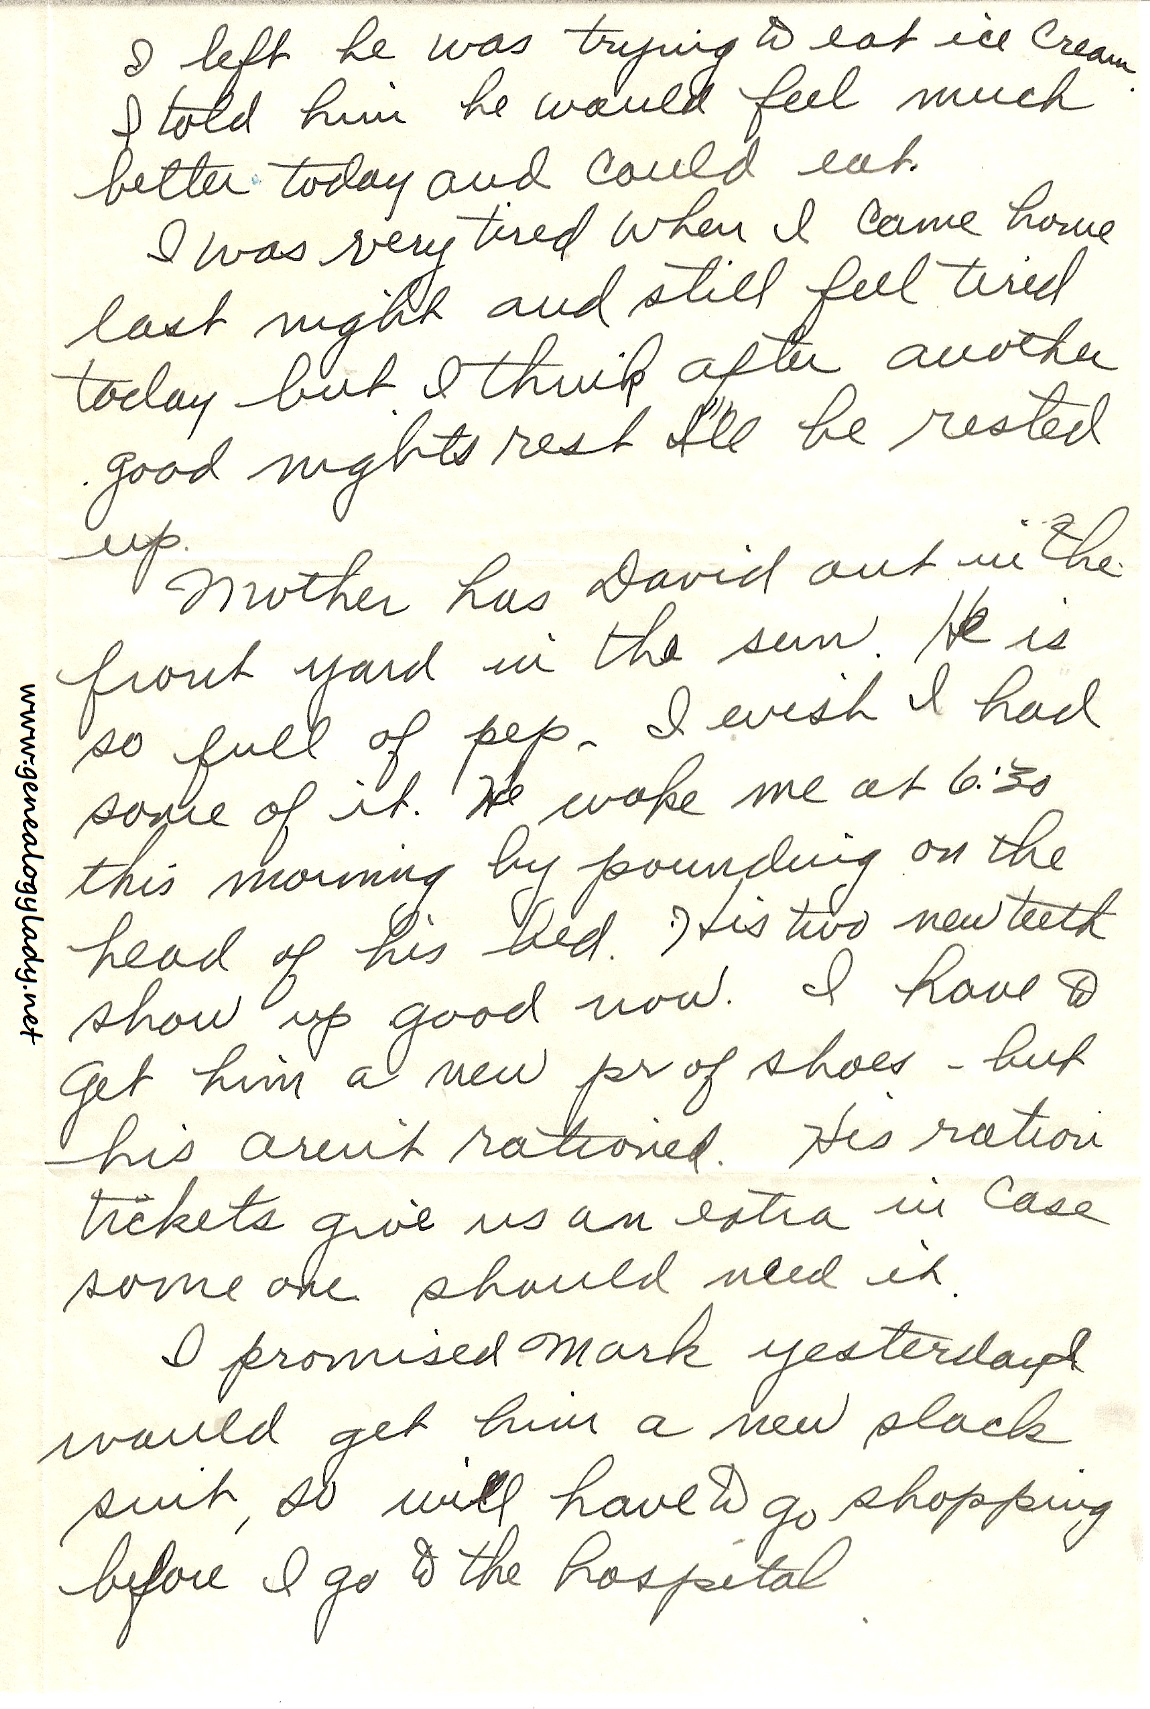 I left he was trying to eat ice cream.
I told him he would feel much
better today and could eat.
I was very tired when I came home
last night and still feel tired
today but I think after another
good nights rest I'll be rested
up.
Mother has David out in the
front yard in the sun. He is
so full of pep - I wish I had
some of it. He woke me at 6:30
this morning by pounding on the
head of his bed. His two new teeth
show up good now. I have to
get him a new pr of shoes - but
his aren't rationed. His ration
tickets give us an extra in case
some one should need it.
I promised Mark yesterday I
would get him a new slack
suit, so will have to go shopping
before I go to the hospital.
www.genealogylady.net